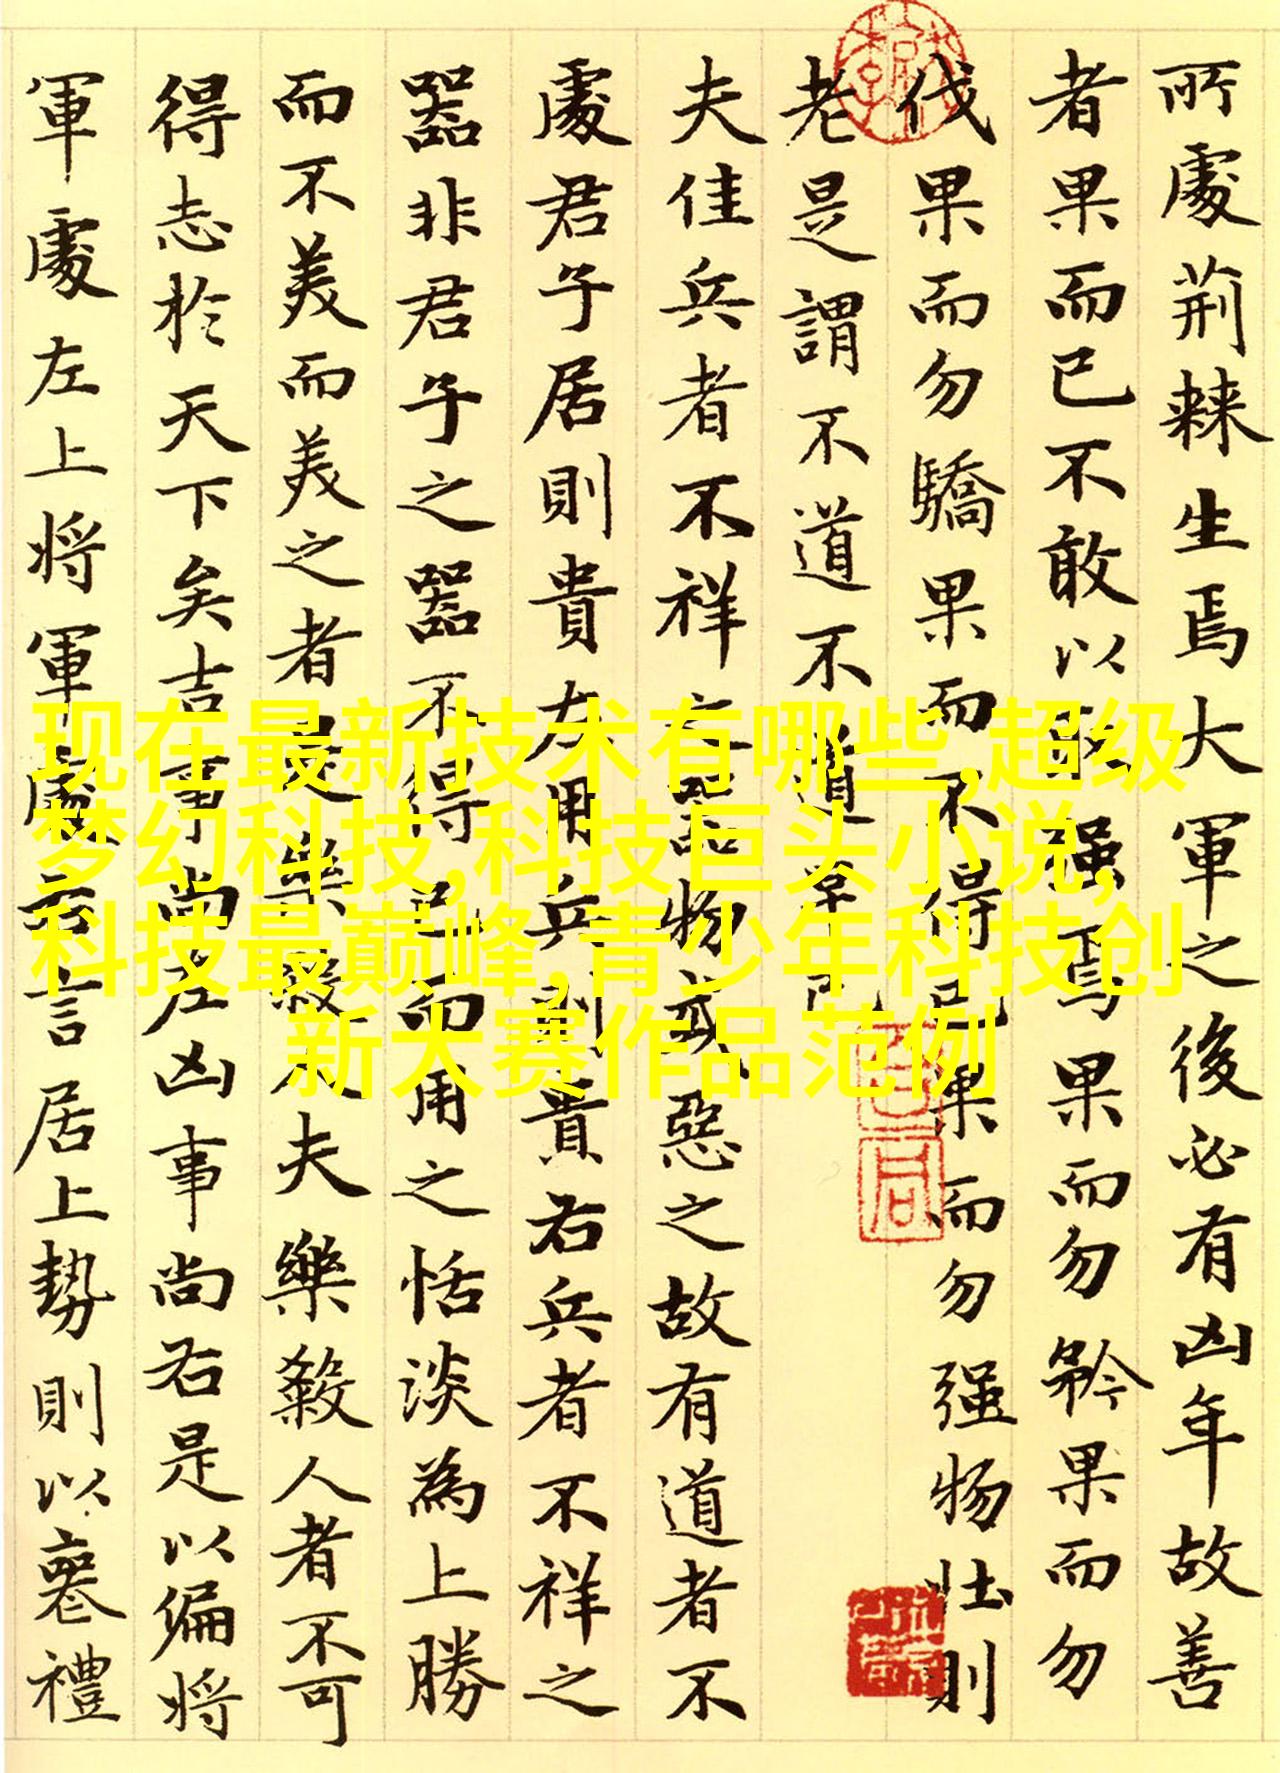 所處荊棘生焉大軍之後必有凶年故善
者果而已不敢以取强焉果而勿矜果而勿
伐果而勿驕果而不得已果而勿强物壯則
老是謂不道不道早已
夫佳兵者不祥之器物或惡之故有道者不
處君子居則貴左用兵則貴右兵者不祥之
器非君子之器不得已而用之恬淡為上勝
而不美而美之者是樂殺人夫樂殺人者不可
得志於天下矣吉事尚左凶事尚右是以偏將
軍處左上將軍處右言居上勢則以喪禮
现在最新技术有哪些,超级
梦幻科技,科技巨头小说,
科技最巅峰,青少年科技创
新大赛作品范例